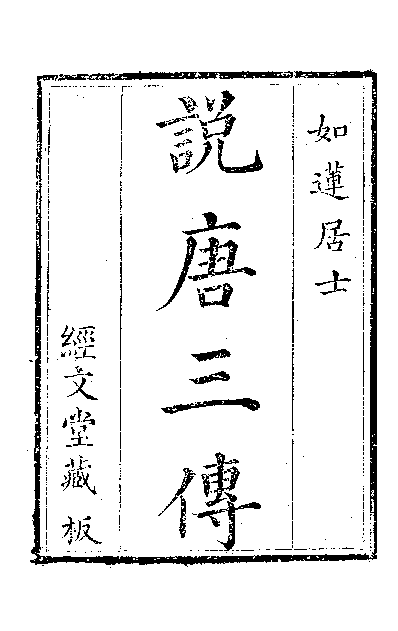 如蓮居士
說唐三傳
經文堂藏板